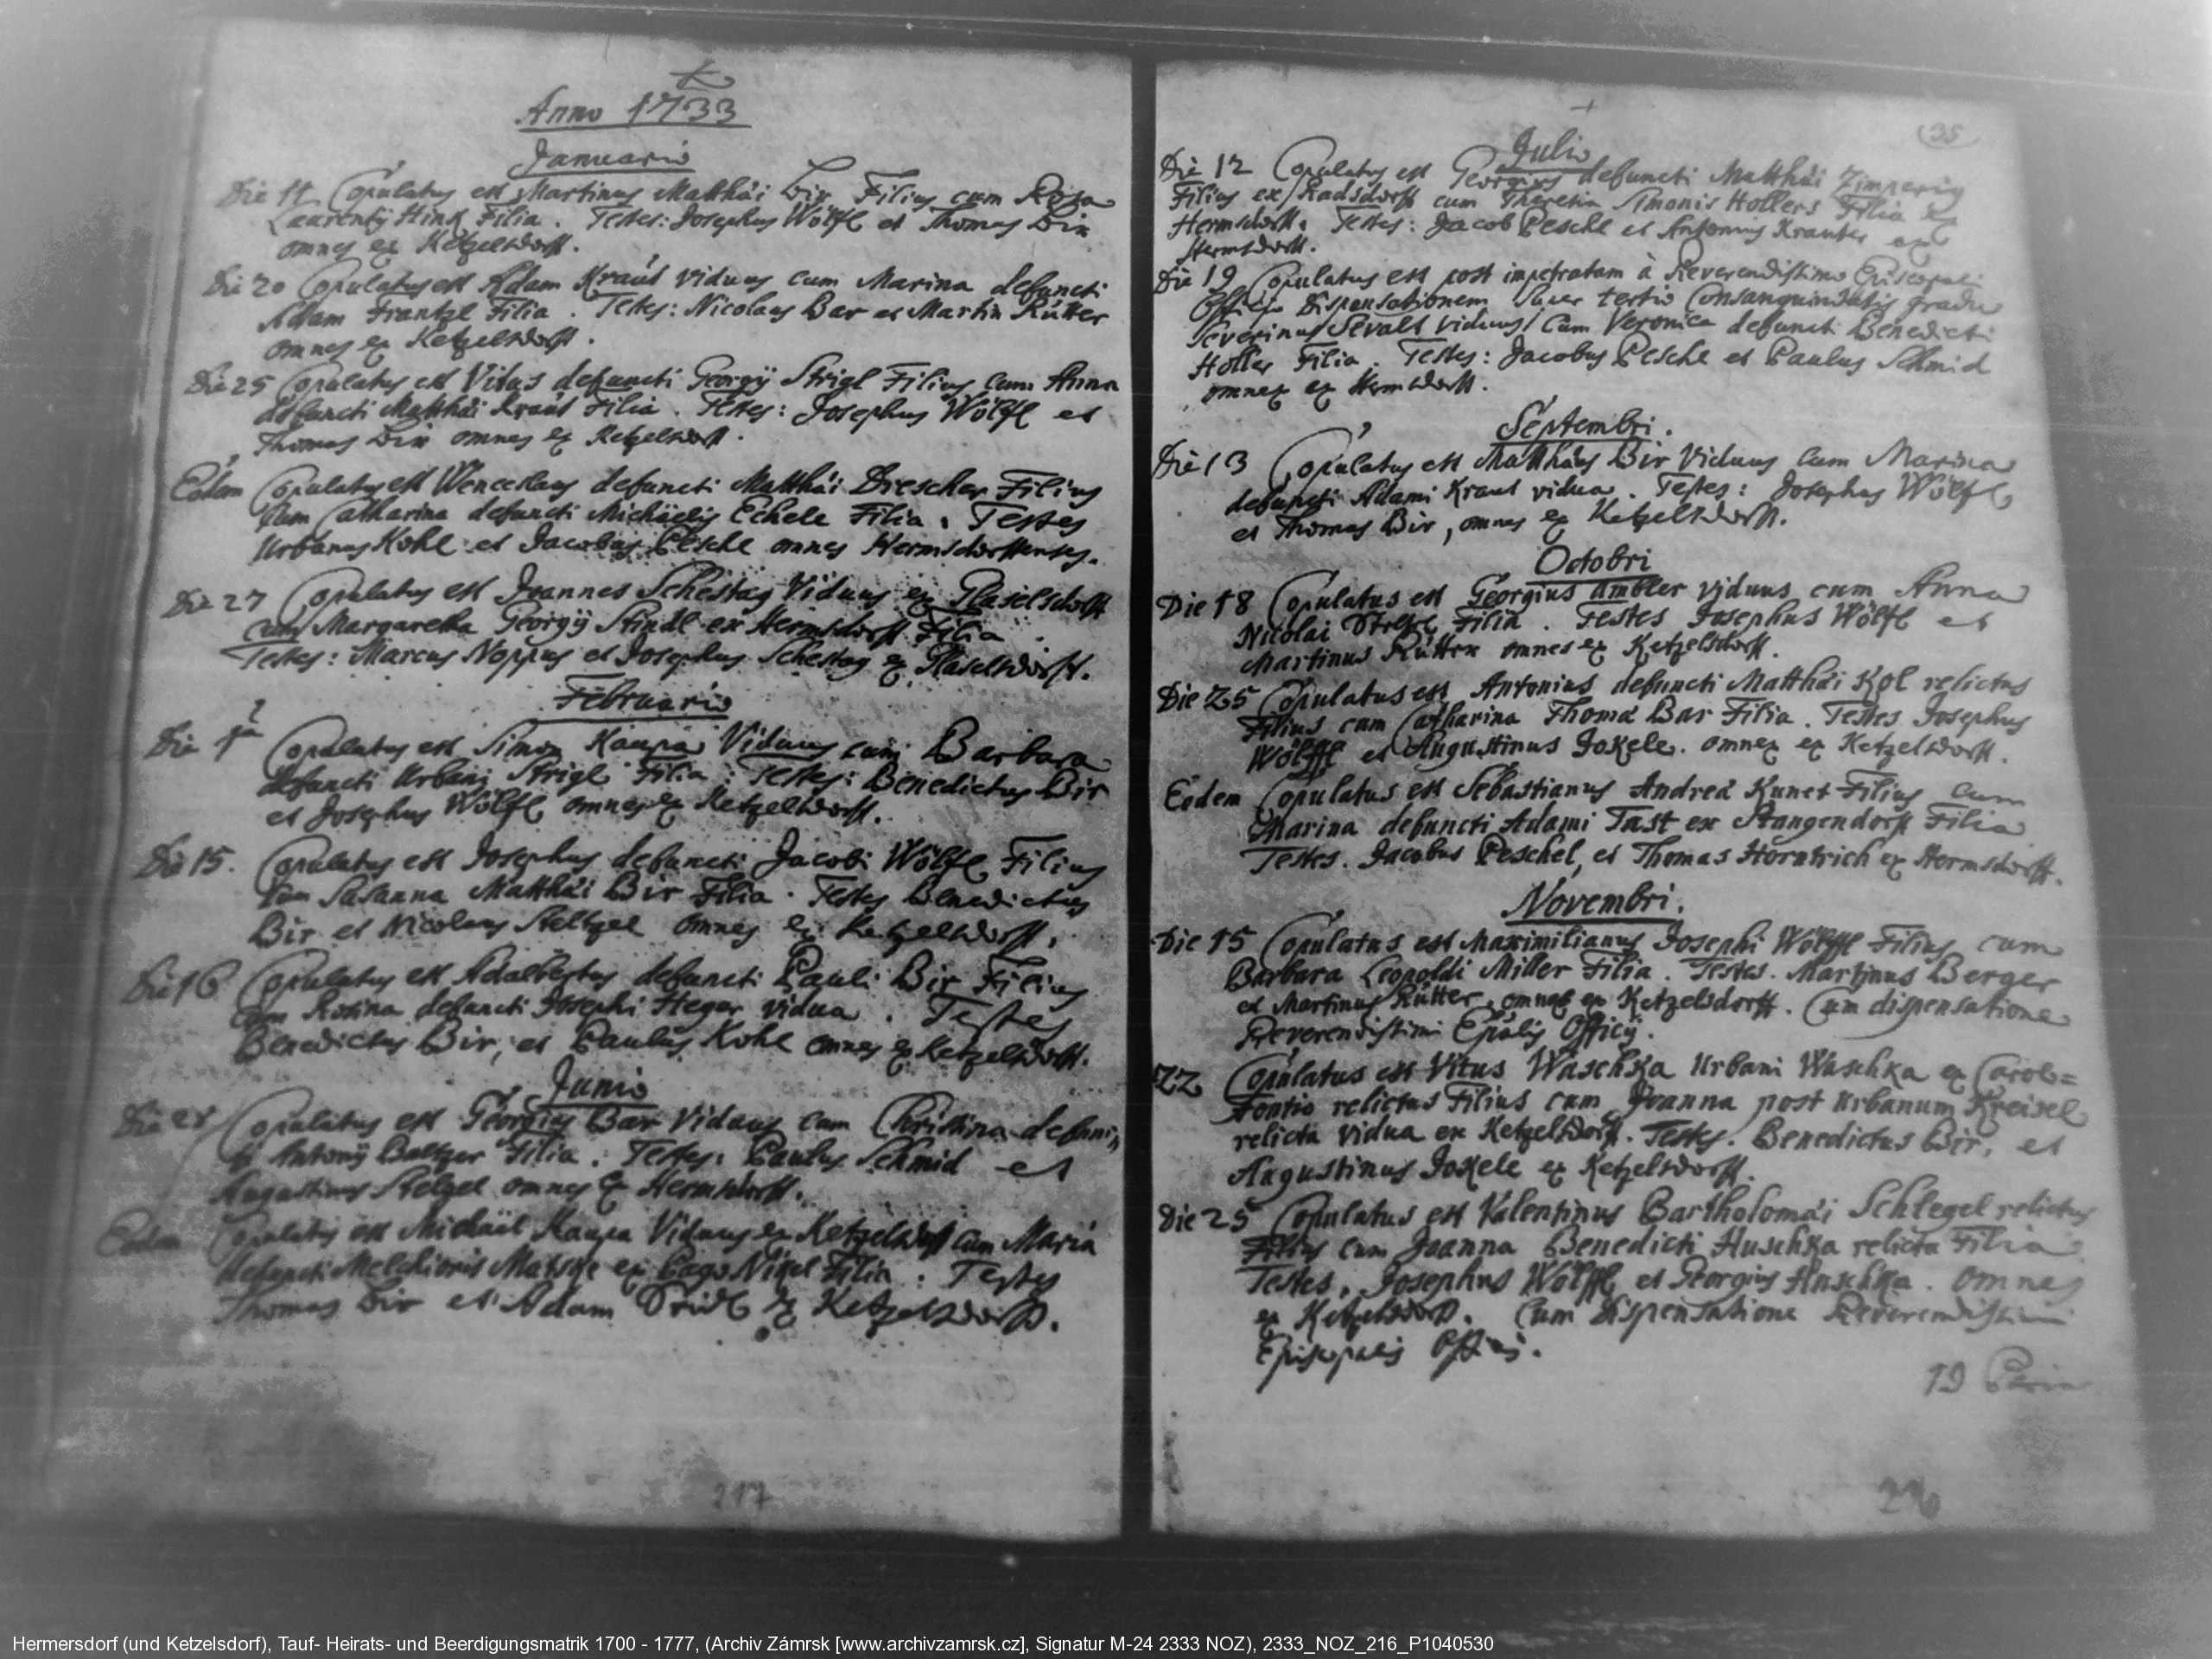 Anno 1733
Januario
Die 11 Copulatus est Martinus Matthäi Bir Filius cum Rosa
Laurentÿ Hink Filia. Testes: Josephus Wölfl et Thomas Bir
omnes ex Ketzelsdorff.
Die 20 Copulatus est Adam Kraus viduus cum Marina defuncti
Adam Frantzl Filia. Testes: Nicolaus Bar et Martin Rütter
omnes ex Ketzelsdorff.
Die 25 Copulatus est Vitus defuncti Georgÿ Strigl Filius cum Anna
defuncti Matthäi Kraus Filia. Testes: Josephus Wölfl et
Thomas Bir omnes ex Ketzelsdorff.
Eodem Copulatus est Wenceslaus defuncti Matthäi Drescher Filius
cum Catharina defuncti Michäelis Eckele Filia. Testes
Urbanus Kohl et Jacobus Pesche omnes Hermsdorffenses.
Die 27 Copulatus est Joannes Schestag Viduus ex Glaselsdorff
cum Margaretha Georgÿ Stindl ex Hermsdorff Filia.
Testes: Marcus Noppus et Josephus Schestag ex Glaselsdorff.
Februario
Die 1 Copulatus est Simon Kaupa Viduus cum Barbara
defuncti Urbani Strigl Filia: Testes: Benedictus Bir
et Josephus Wölfl omnes ex Ketzelsdorff.
Die 15. Copulatus est Josephus defuncti Jacobi Wölfl Filius
cum Susanna Matthäi Bir Filia. Testes Benedictus
Bir et Nicolaus Steltzel omnes ex Ketzelsdorff.
Die 16 Copulatus est Adalbertus defuncti Pauli Bir Filius
cum Rosina defuncti Josephi Heger vidua. Testes
Benedictus Bir, et Paulus Kohl omnes ex Ketzelsdorff.
Junio
Die Copulatus est Georgius Bar Viduus cum Christina defunc
ti Antonÿ Baltzer Filia. Testes: Paulus Schmid et
Augustinus Stelzel omnes ex Hermsdorff.
Eodem Copulatus est Michäel Kaupa Viduus ex Ketzelsdorff cum Maria
defuncti Melchioris Matsche ex Pago Nikel Filia: Testes
Thomas Bir et Adam ex Ketzelsdorff.
217
35
Julio
Die 12 Copulatus est Georgius defuncti Matthäi
Filius ex Radsdorff cum Theresia Simonis Hollers Filia ex
Hermsdorff. Testes: Jacob Peschl et Antonius Krauter ex
Hermsdorff.
Die 19 Copulatus est post impetratam à Reverendissimo Episcopali
Officio Dispensationem super tertio Consanguinitatis gradu
Severinus Sevalt viduus cum Veronica defuncti Benedicti
Holler Filia. Testes: Jacobus Peschl et Paulus Schmid
omnes ex Hermsdorff.
Septembri.
Die 13 Copulatus est Matthäus Bir Viduus cum Marina
defuncti Adami Kraus vidua. Testes: Josephus Wölfl,
et Thomas Bir, omnes ex Ketzelsdorff.
Octobri
Die 18 Copulatus est Georgius Ambler viduus cum Anna
Nicolai Filia. Testes Josephus Wölfl et
Martinus Rütter omnes ex Ketzelsdorff.
Die 25 Copulatus est Antonius defuncti Matthäi Kol relictus
Filius cum Catharina Thoma Bar Filia. Testes Josephus
Wölffl et Augustinus Jokele. omnes ex Ketzelsdorff.
Eodem Copulatus est Sebastianus Andrea Kunet Filius cum
Marina defuncti Adami Tast ex Stangendorff Filia
Testes. Jacobus Peschel, et Thomas Hornirich ex Hermsdorff.
Novembri.
Die 15 Copulatus est Maximilianus Josephi Wölffl Filius cum
Barbara Leopoldi Miller Filia. Testes. Martinus Berger
et Martinus Rütter, omnes ex Ketzelsdorff. Cum dispensatione
Reverendissimi Epalis Officÿ.
22 Copulatus est Vitus Waschka Urbani Waschka ex Carolo=
Fontio relictus Filius cum Joanna post Urbanum Kreisel
relicta vidua ex Ketzelsdorff. Testes. Benedictus Bir, et
Augustinus Jokele ex Ketzelsdorff.
Die 25 Copulatus est Valentinus Bartholomäi Schlegel relictus
Filius cum Joanna Benedicti Huschka relicta Filia
Testes, Josephus Wölffl et Georgius Huschka. omnes
ex Ketzelsdorff. Cum dispensatione Reverendissimi
Episcopalis Officÿ.
19 Paria
216
Hermersdorf (und Ketzelsdorf), Tauf- Heirats- und Beerdigungsmatrik 1700 - 1777, (Archiv Zámrsk [www.archivzamrsk.cz], Signatur M-24 2333 NOZ), 2333_NOZ_216_P1040530